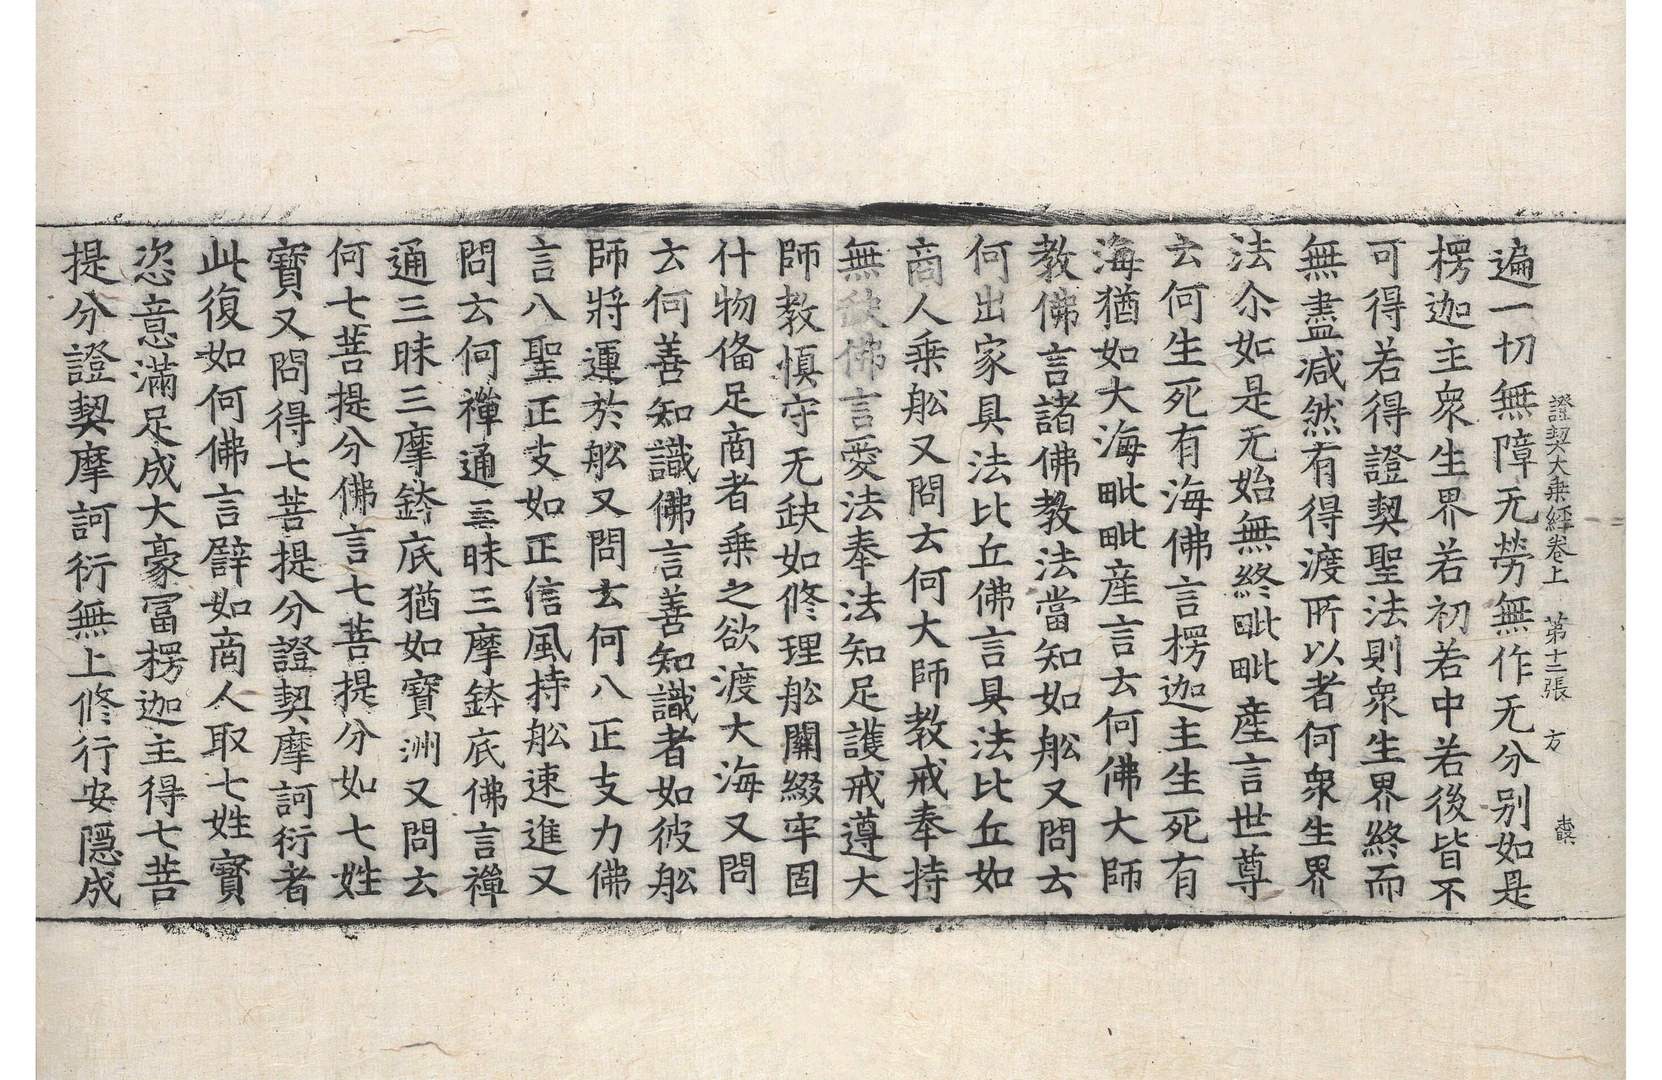 證契大乘經卷上　第十二張　方
遍一切無障无勞無作无分别如是
楞迦主衆生界若初若中若後皆不
可得若得證契聖法則衆生界終而
無盡减然有得渡所以者何衆生界
法尒如是无始無終毗毗產言世尊
云何生死有海佛言楞迦主生死有
海猶如大海毗毗產言云何佛大師
教佛言諸佛教法當知如舩又問云
何出家具法比丘佛言具法比丘如
商人乘舩又問云何大師教戒奉持
無缺佛言愛法奉法知足護戒遵大
師教慎守无缺如修理舩關綴牢固
什物俻足商者乘之欲渡大海又問
云何善知識佛言善知識者如彼舩
師將運於舩又問云何八正支力佛
言八聖正支如正信風持舩速進又
問云何禪通三昧三摩鉢底佛言禪
通三昧三摩鉢底猶如寶洲又問云
何七菩提分佛言七菩提分如七姓
寶又問得七菩提分證契摩訶衍者
此復如何佛言辟如商人取七姓寳
恣意滿足成大豪冨楞迦主得七菩
提分證契摩訶衍無上修行安隱成